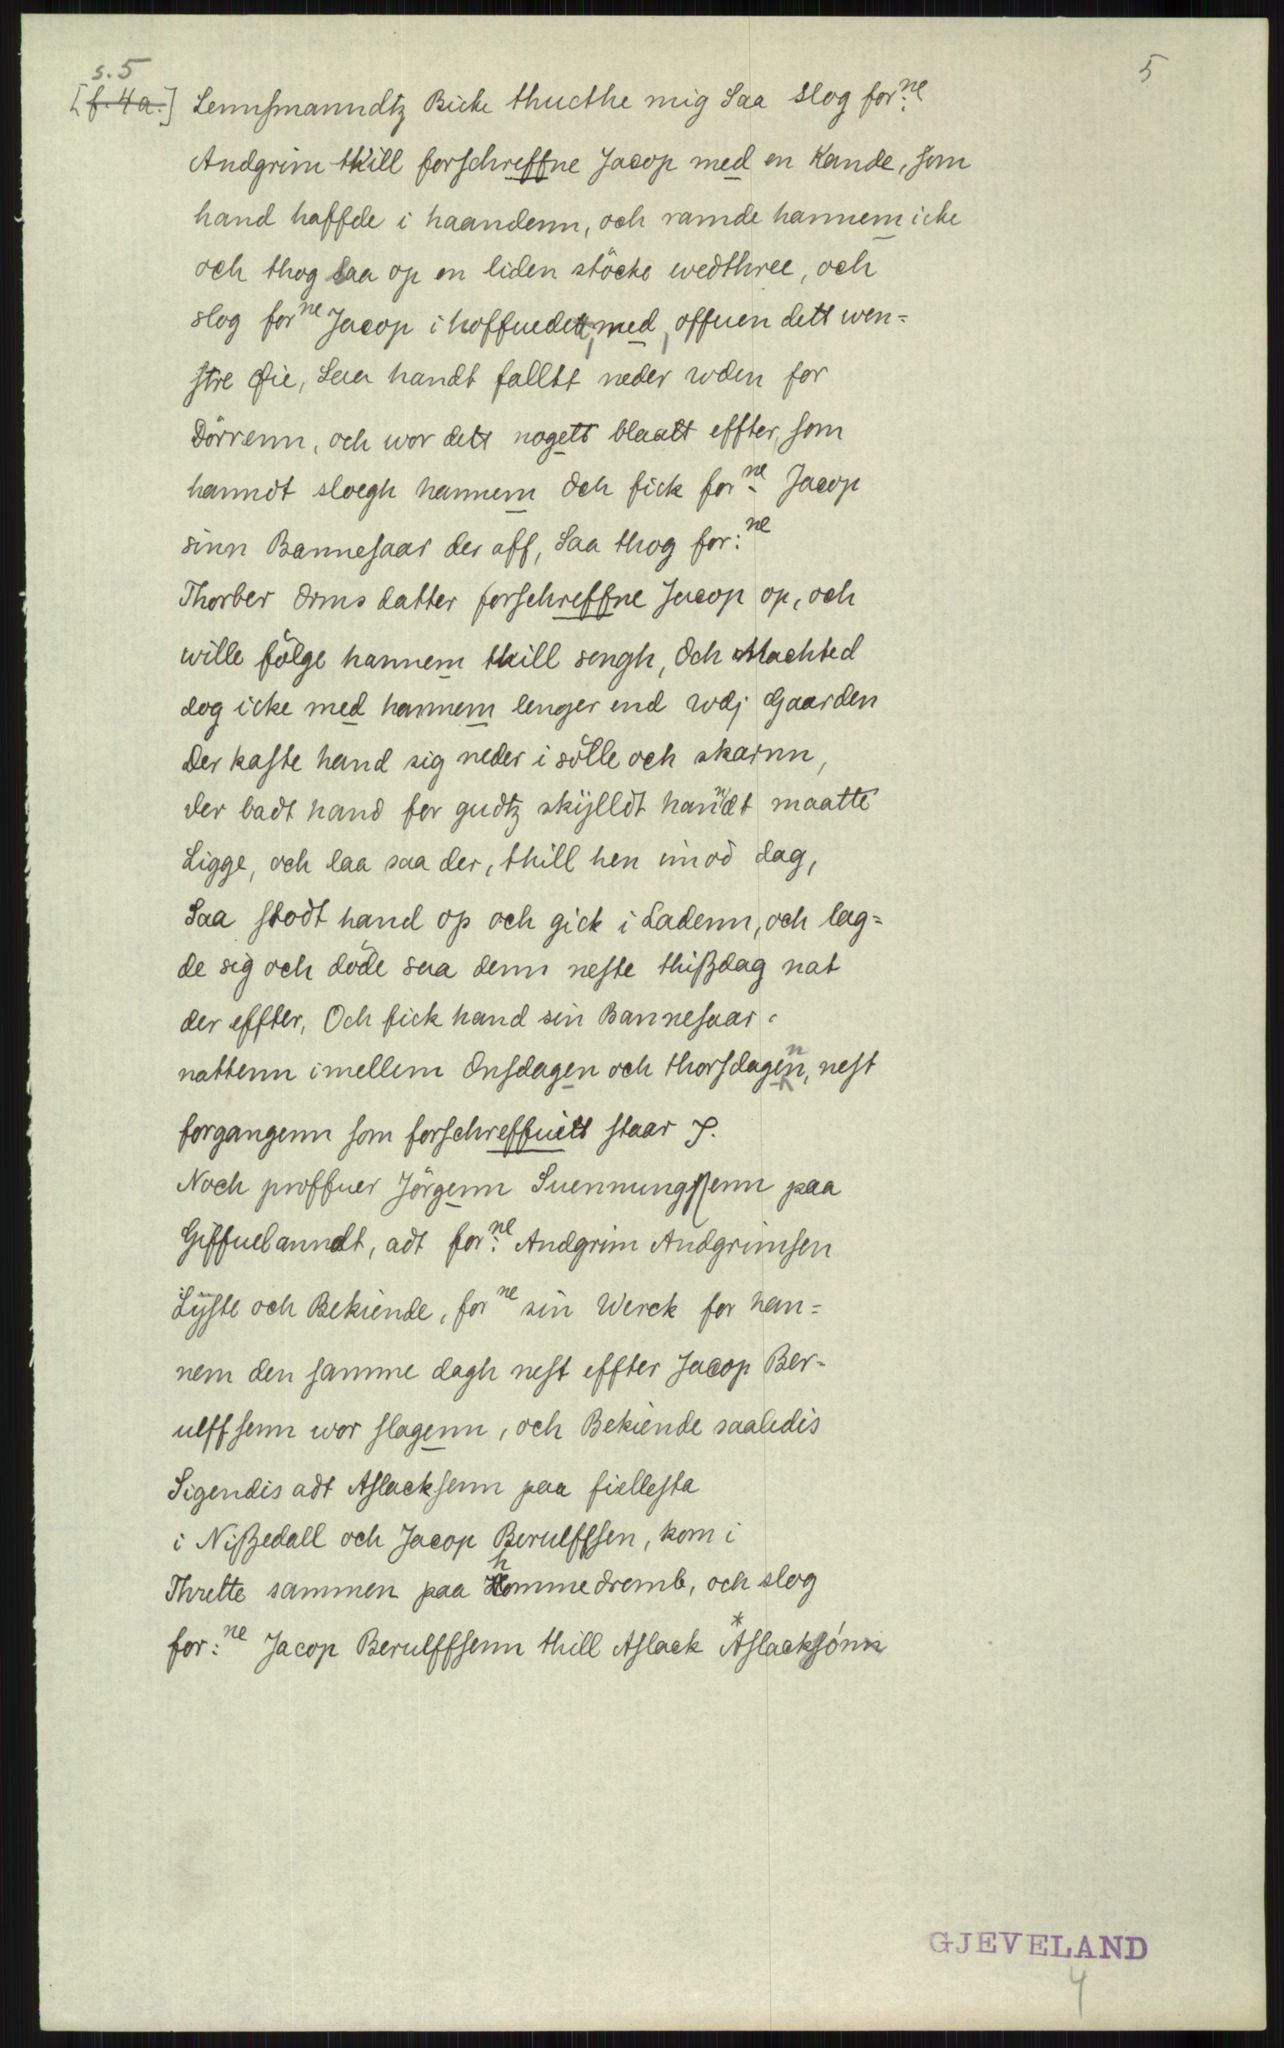 s. 5
5
[f. 4a.] Lennsmanndtz Bicke thucthe mig Saa slog for:ne
Andgrim thill forschreffne Jacop med en Kande, som
hand haffde i haandenn, och ramde hannem icke
och thog saa op en liden stöcke wedthree, och
slog forne Jacop i hoffuedett, med, offuen dett wen=
stre Øie, Saa handt falltt neder wden for
Dörrenn, och wor dett nogett blaatt effter, som
hanndt sloegh hannem Och fick for:ne Jacop
sinn Bannesaar der aff, Saa thog for:ne
Thorber Orms datter forschreffne Jacop op, och
wille fölge hannem thill sengh, Och Machted
dog icke med hannem lenger end wdj Gaarden
Der kaste hand sig neder i sölle och skarnn,
der badt hand for gudtz skÿlldt hanndt maatte
Ligge, och laa saa der, thill hen imod dag,
Saa stodt hand op och gick i Ladenn, och lag=
de sig och döde saa denn neste thißdag nat
der effter, Och fick hand sin Bannesaar
nattenn imellem Onsdagen och thorsdagenn, nest
forgangenn som forschreffuitt staar J.
Noch proffuer Jörgenn Suennungssenn paa
Giffuelanndt, adt for:ne Andgrim Andgrimsen
Lÿste och Bekiende, forne sin Werck for han=
nem den samme dagh nest effter Jacop Ber=
ulffsenn wor slagenn, och Bekiende saaledis
Sigendis adt Aslacksenn paa fiellesta
i Nißedall och Jacop Berulffsen, kom i
Thrette sammen paa hommedremb, och slog
for:ne Jacop Berulffsenn thill Aslack *Aslacksönn
GJEVELAND
4